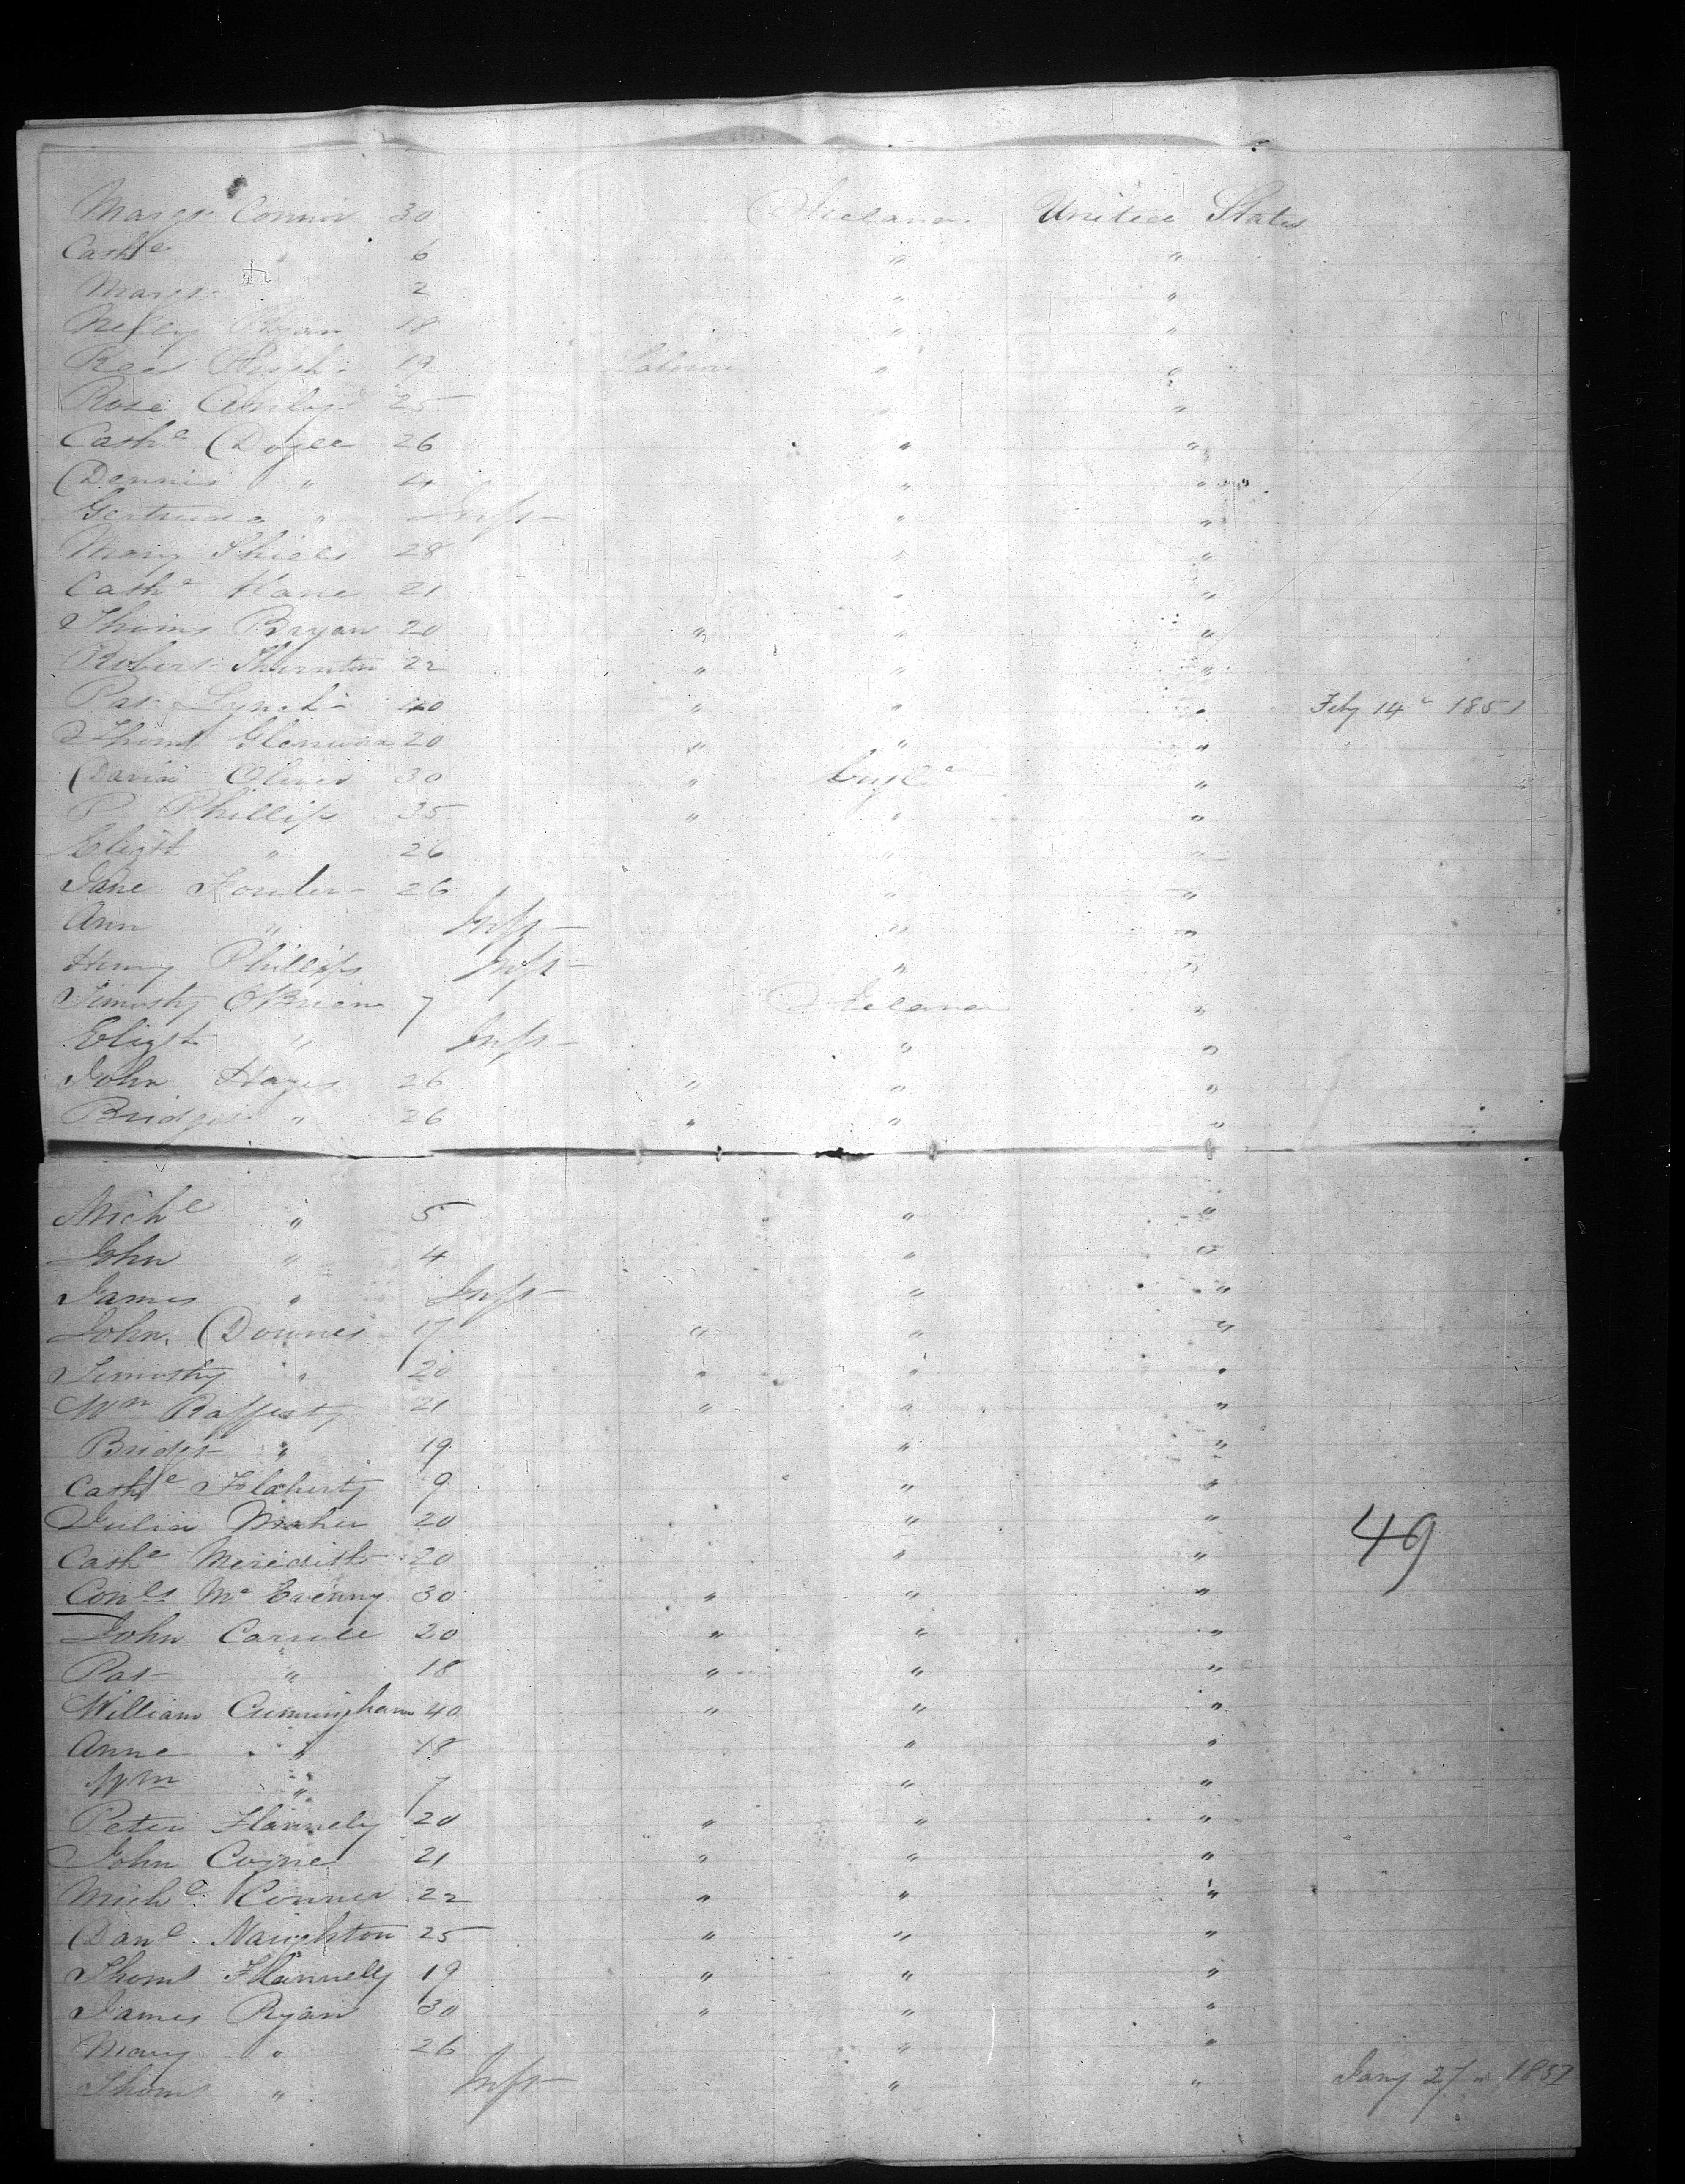 Margt Connor 30 Ireland United States
Cathe " 6 " "
Margt 2 " "
Nelly Ryan 18 " "
Hugh 19 Labourer " "
Rose 25 " "
Cathe Doyle 26 " "
Dennis " 4 " "
Gertrude " Inft " "
Mary Shiels 28 " "
Cathe Kane 21 " "
Thoms Bryan 20 " " "
Robert Thornton 22 " " "
Pat Lynch 40 " " " Feby 14th 1851
Thoms 20 " " "
David Oliver 30 " Engld "
P Phillips 35 " " "
Elizth " 26 " "
Jane Fowler 26 " "
Ann " Inft " "
Henry Phillips Inft " "
Timothy O'Brien 7 Ireland "
Elizth " Inft " "
John Hayes 26 " " "
Bridget " 26 " " "
Michl " 5 " "
John " 4 " "
James " Inft " "
John Downes 17 " " "
Timothy " 20 " " "
Wm Rafferty 21 " " "
Bridgt " 19 " "
Cathe Flaherty 9 " "
Julia Maher 20 " " 49
Cathe Meredith 20 " "
Conls Mc Evenny 30 " " "
John Carroll 20 " " "
Pat " 18 " " "
William Cunningham 40 " " "
Anne " 18 " "
Wm " 7 " "
Peter Flannely 20 " " "
John Coyne 21 " " "
Michl Conner 22 " " "
Danl Naughton 25 " " "
Thoms Flannelly 19 " " "
James Ryan 30 " " "
Mary " 26 " "
Thoms " Inft " " Jany 27th 1851